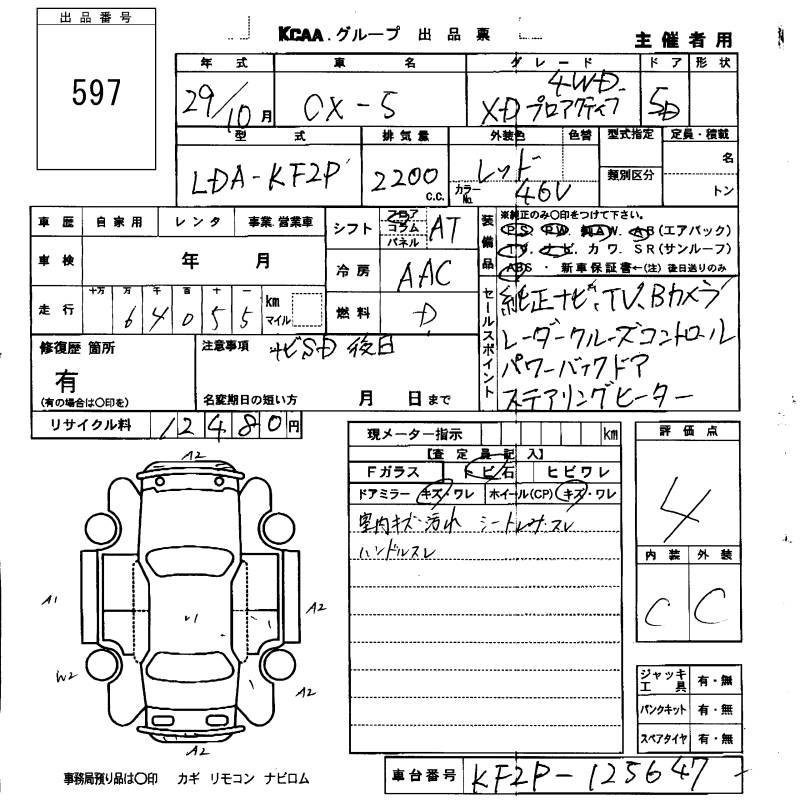 出品番号
597
KCAA グループ 出品票
主催者用
年式 車名 グレード ドア 形状
29/10月 CX-5 XD プロアクティブ 4WD 5D
型式 排気量 外装色 色替 型式指定 定員・積載
LDA-KF2P 2200 c.c. レッド カラーNo. 46V 類別区分 名
トン
車歴 自家用 レンタ 事業.営業車
シフト フロア コラム パネル AT
車検 年 月
冷房 AAC
走行 十万 万 千 百 十 一
64055 km マイル
燃料 D
装備品
※純正のみ〇印をつけて下さい。
PS. PW. 純AW. AB(エアバック)
TV. ナビ. カワ. SR(サンルーフ)
ABS ・ 新車保証書←(注) 後日送りのみ
セールスポイント
純正ナビ、TV、Bカメラ
レーダークルーズコントロール
パワーバックドア
ステアリングヒーター
修復歴 箇所
有
(有の場合は〇印を)
注意事項 ナビSD 後日
名変期日の短い方 月 日まで
リサイクル料 12480円
現メーター指示 km
【査定員記入】
Fガラス トビ石 ヒビワレ
ドアミラー キズ・ワレ ホイール(CP) キズ・ワレ
室内キズ・汚れ シートレザースレ
ハンドルスレ
評価点
4
内装 外装
C C
A2
A1
V1
1
A2
W2
1
A2
A2
ジャッキ工具 有・無
パンクキット 有・無
スペアタイヤ 有・無
事務局預り品は〇印 カギ リモコン ナビロム
車台番号 KF2P-125647